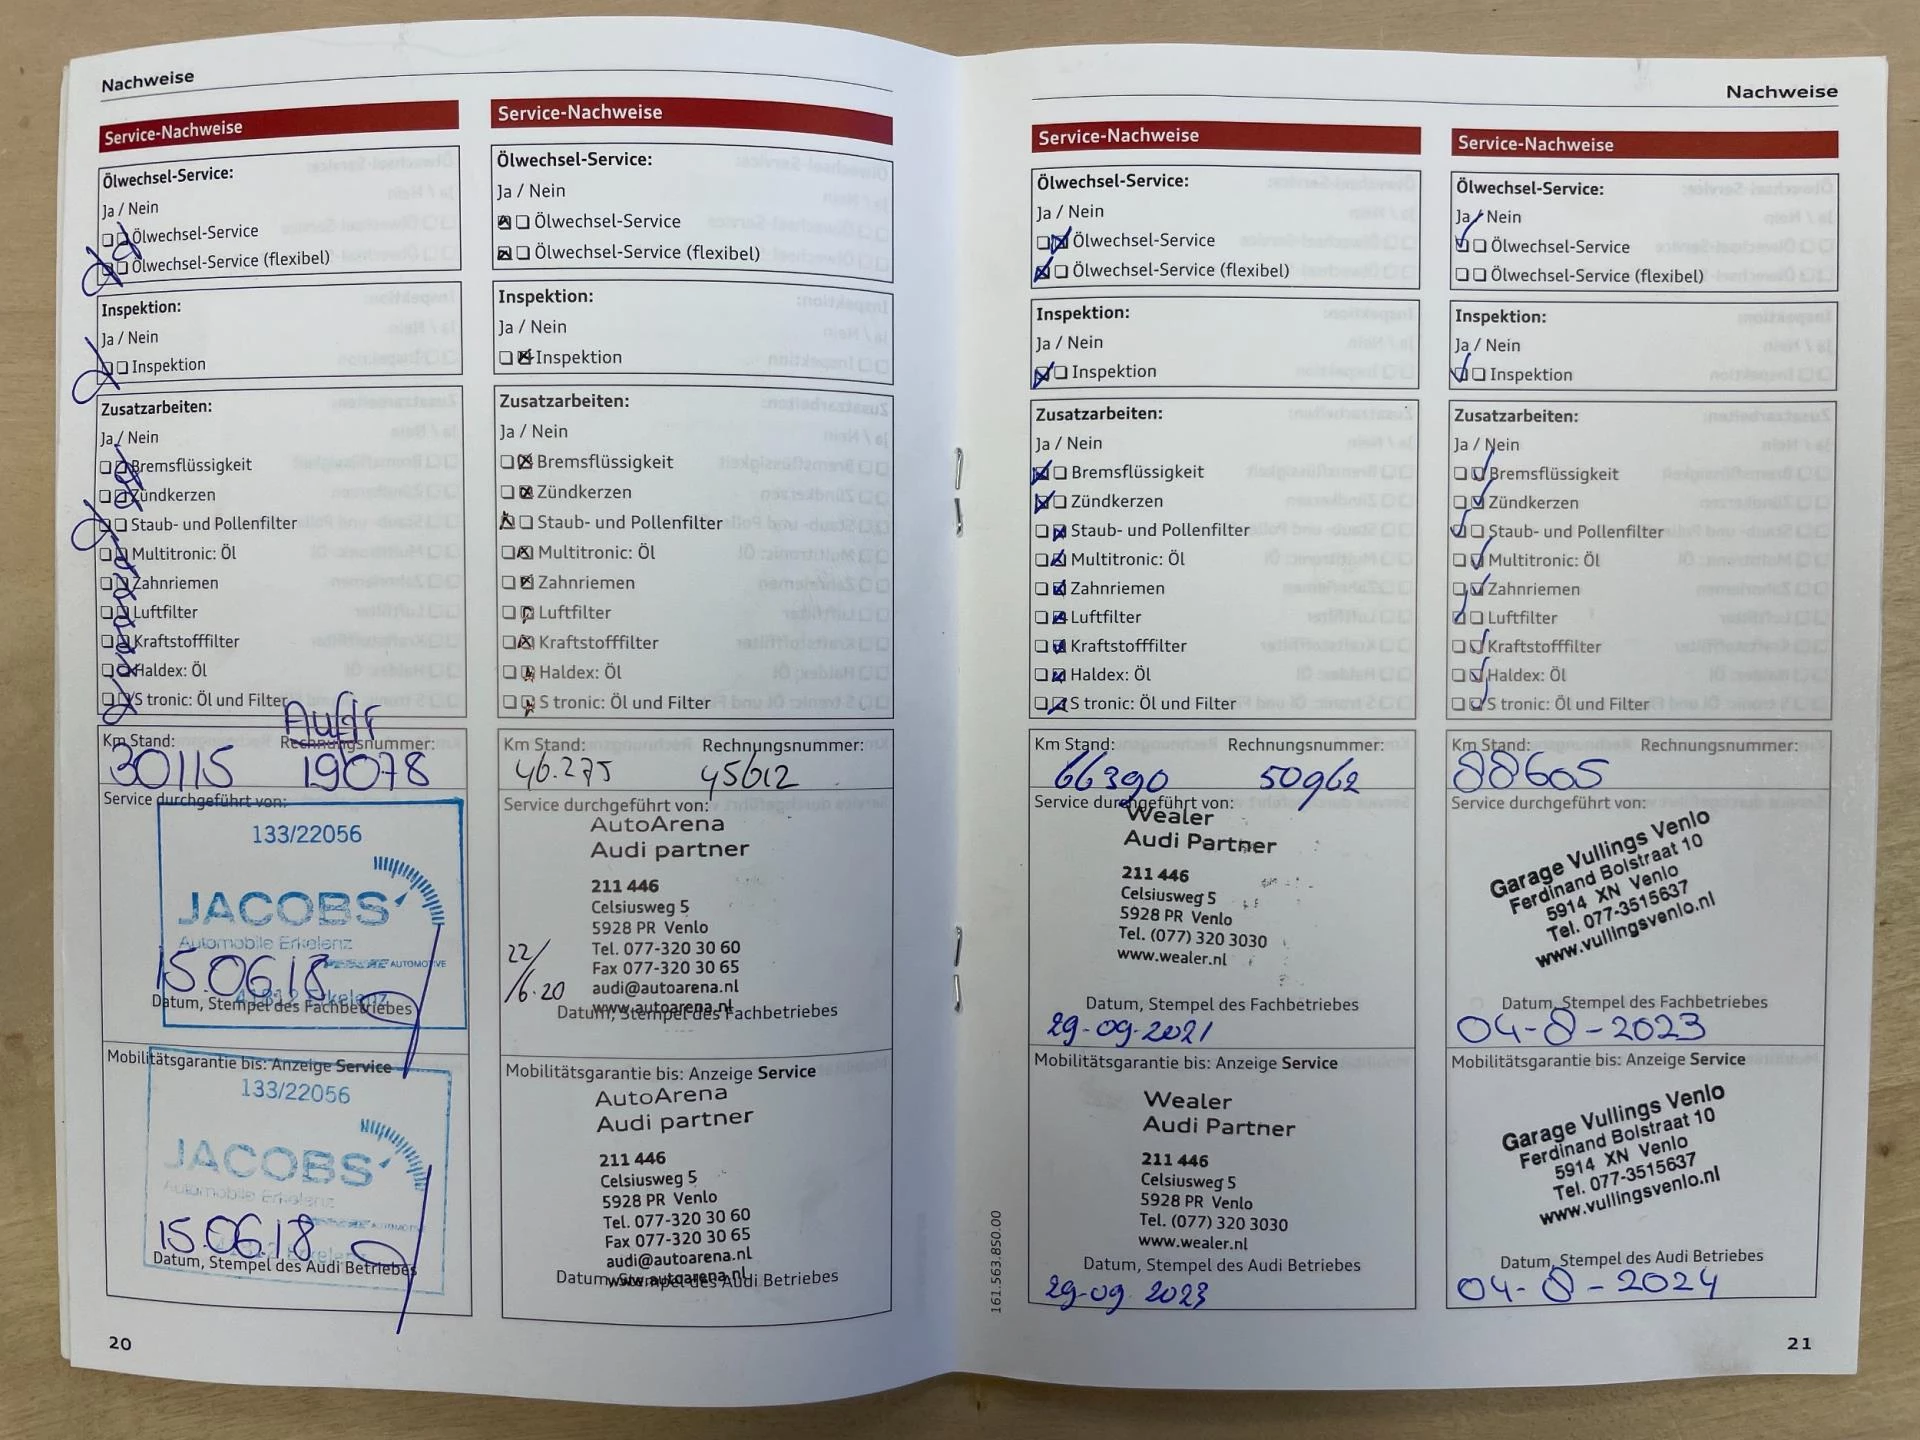 Nachweise
Service-Nachweise
Ölwechsel-Service:
Ja / Nein
Ölwechsel-Service
Ölwechsel-Service (flexibel)
Inspektion:
Ja / Nein
Inspektion
Zusatzarbeiten:
Ja / Nein
Bremsflüssigkeit
Zündkerzen
Staub- und Pollenfilter
Multitronic: Öl
Zahnriemen
Luftfilter
Kraftstofffilter
Haldex: Öl
S tronic: Öl und Filter
Km Stand: Rechnungsnummer:
30115 19078
Service durchgeführt von:
133/22056
JACOBS
Automobile Erkelenz
AUTOMOTIVE
15.06.18
41812 Erkelenz
Datum, Stempel des Fachbetriebes
Mobilitätsgarantie bis: Anzeige Service
133/22056
JACOBS
Automobile Erkelenz
15.06.18
41812 Erkelenz
Datum, Stempel des Audi Betriebes
20
Service-Nachweise
Ölwechsel-Service:
Ja / Nein
Ölwechsel-Service
Ölwechsel-Service (flexibel)
Inspektion:
Ja / Nein
Inspektion
Zusatzarbeiten:
Ja / Nein
Bremsflüssigkeit
Zündkerzen
Staub- und Pollenfilter
Multitronic: Öl
Zahnriemen
Luftfilter
Kraftstofffilter
Haldex: Öl
S tronic: Öl und Filter
Km Stand: Rechnungsnummer:
46.275 45612
Service durchgeführt von:
AutoArena
Audi partner
211 446
Celsiusweg 5
5928 PR Venlo
Tel. 077-320 30 60
Fax 077-320 30 65
audi@autoarena.nl
www.autoarena.nl
22/6.20
Datum, Stempel des Fachbetriebes
Mobilitätsgarantie bis: Anzeige Service
AutoArena
Audi partner
211 446
Celsiusweg 5
5928 PR Venlo
Tel. 077-320 30 60
Fax 077-320 30 65
audi@autoarena.nl
www.autoarena.nl
Datum, Stempel des Audi Betriebes
Nachweise
Service-Nachweise
Ölwechsel-Service:
Ja / Nein
Ölwechsel-Service
Ölwechsel-Service (flexibel)
Inspektion:
Ja / Nein
Inspektion
Zusatzarbeiten:
Ja / Nein
Bremsflüssigkeit
Zündkerzen
Staub- und Pollenfilter
Multitronic: Öl
Zahnriemen
Luftfilter
Kraftstofffilter
Haldex: Öl
S tronic: Öl und Filter
Km Stand: Rechnungsnummer:
66390 50962
Service durchgeführt von:
Wealer
Audi Partner
211 446
Celsiusweg 5
5928 PR Venlo
Tel. (077) 320 3030
www.wealer.nl
Datum, Stempel des Fachbetriebes
29-09-2021
Mobilitätsgarantie bis: Anzeige Service
Wealer
Audi Partner
211 446
Celsiusweg 5
5928 PR Venlo
Tel. (077) 320 3030
www.wealer.nl
Datum, Stempel des Audi Betriebes
29-09 2023
161.563.850.00
Service-Nachweise
Ölwechsel-Service:
Ja / Nein
Ölwechsel-Service
Ölwechsel-Service (flexibel)
Inspektion:
Ja / Nein
Inspektion
Zusatzarbeiten:
Ja / Nein
Bremsflüssigkeit
Zündkerzen
Staub- und Pollenfilter
Multitronic: Öl
Zahnriemen
Luftfilter
Kraftstofffilter
Haldex: Öl
S tronic: Öl und Filter
Km Stand: Rechnungsnummer:
88605
Service durchgeführt von:
Garage Vullings Venlo
Ferdinand Bolstraat 10
5914 XN Venlo
Tel. 077-3515637
www.vullingsvenlo.nl
Datum, Stempel des Fachbetriebes
04-8-2023
Mobilitätsgarantie bis: Anzeige Service
Garage Vullings Venlo
Ferdinand Bolstraat 10
5914 XN Venlo
Tel. 077-3515637
www.vullingsvenlo.nl
Datum, Stempel des Audi Betriebes
04-8-2024
21